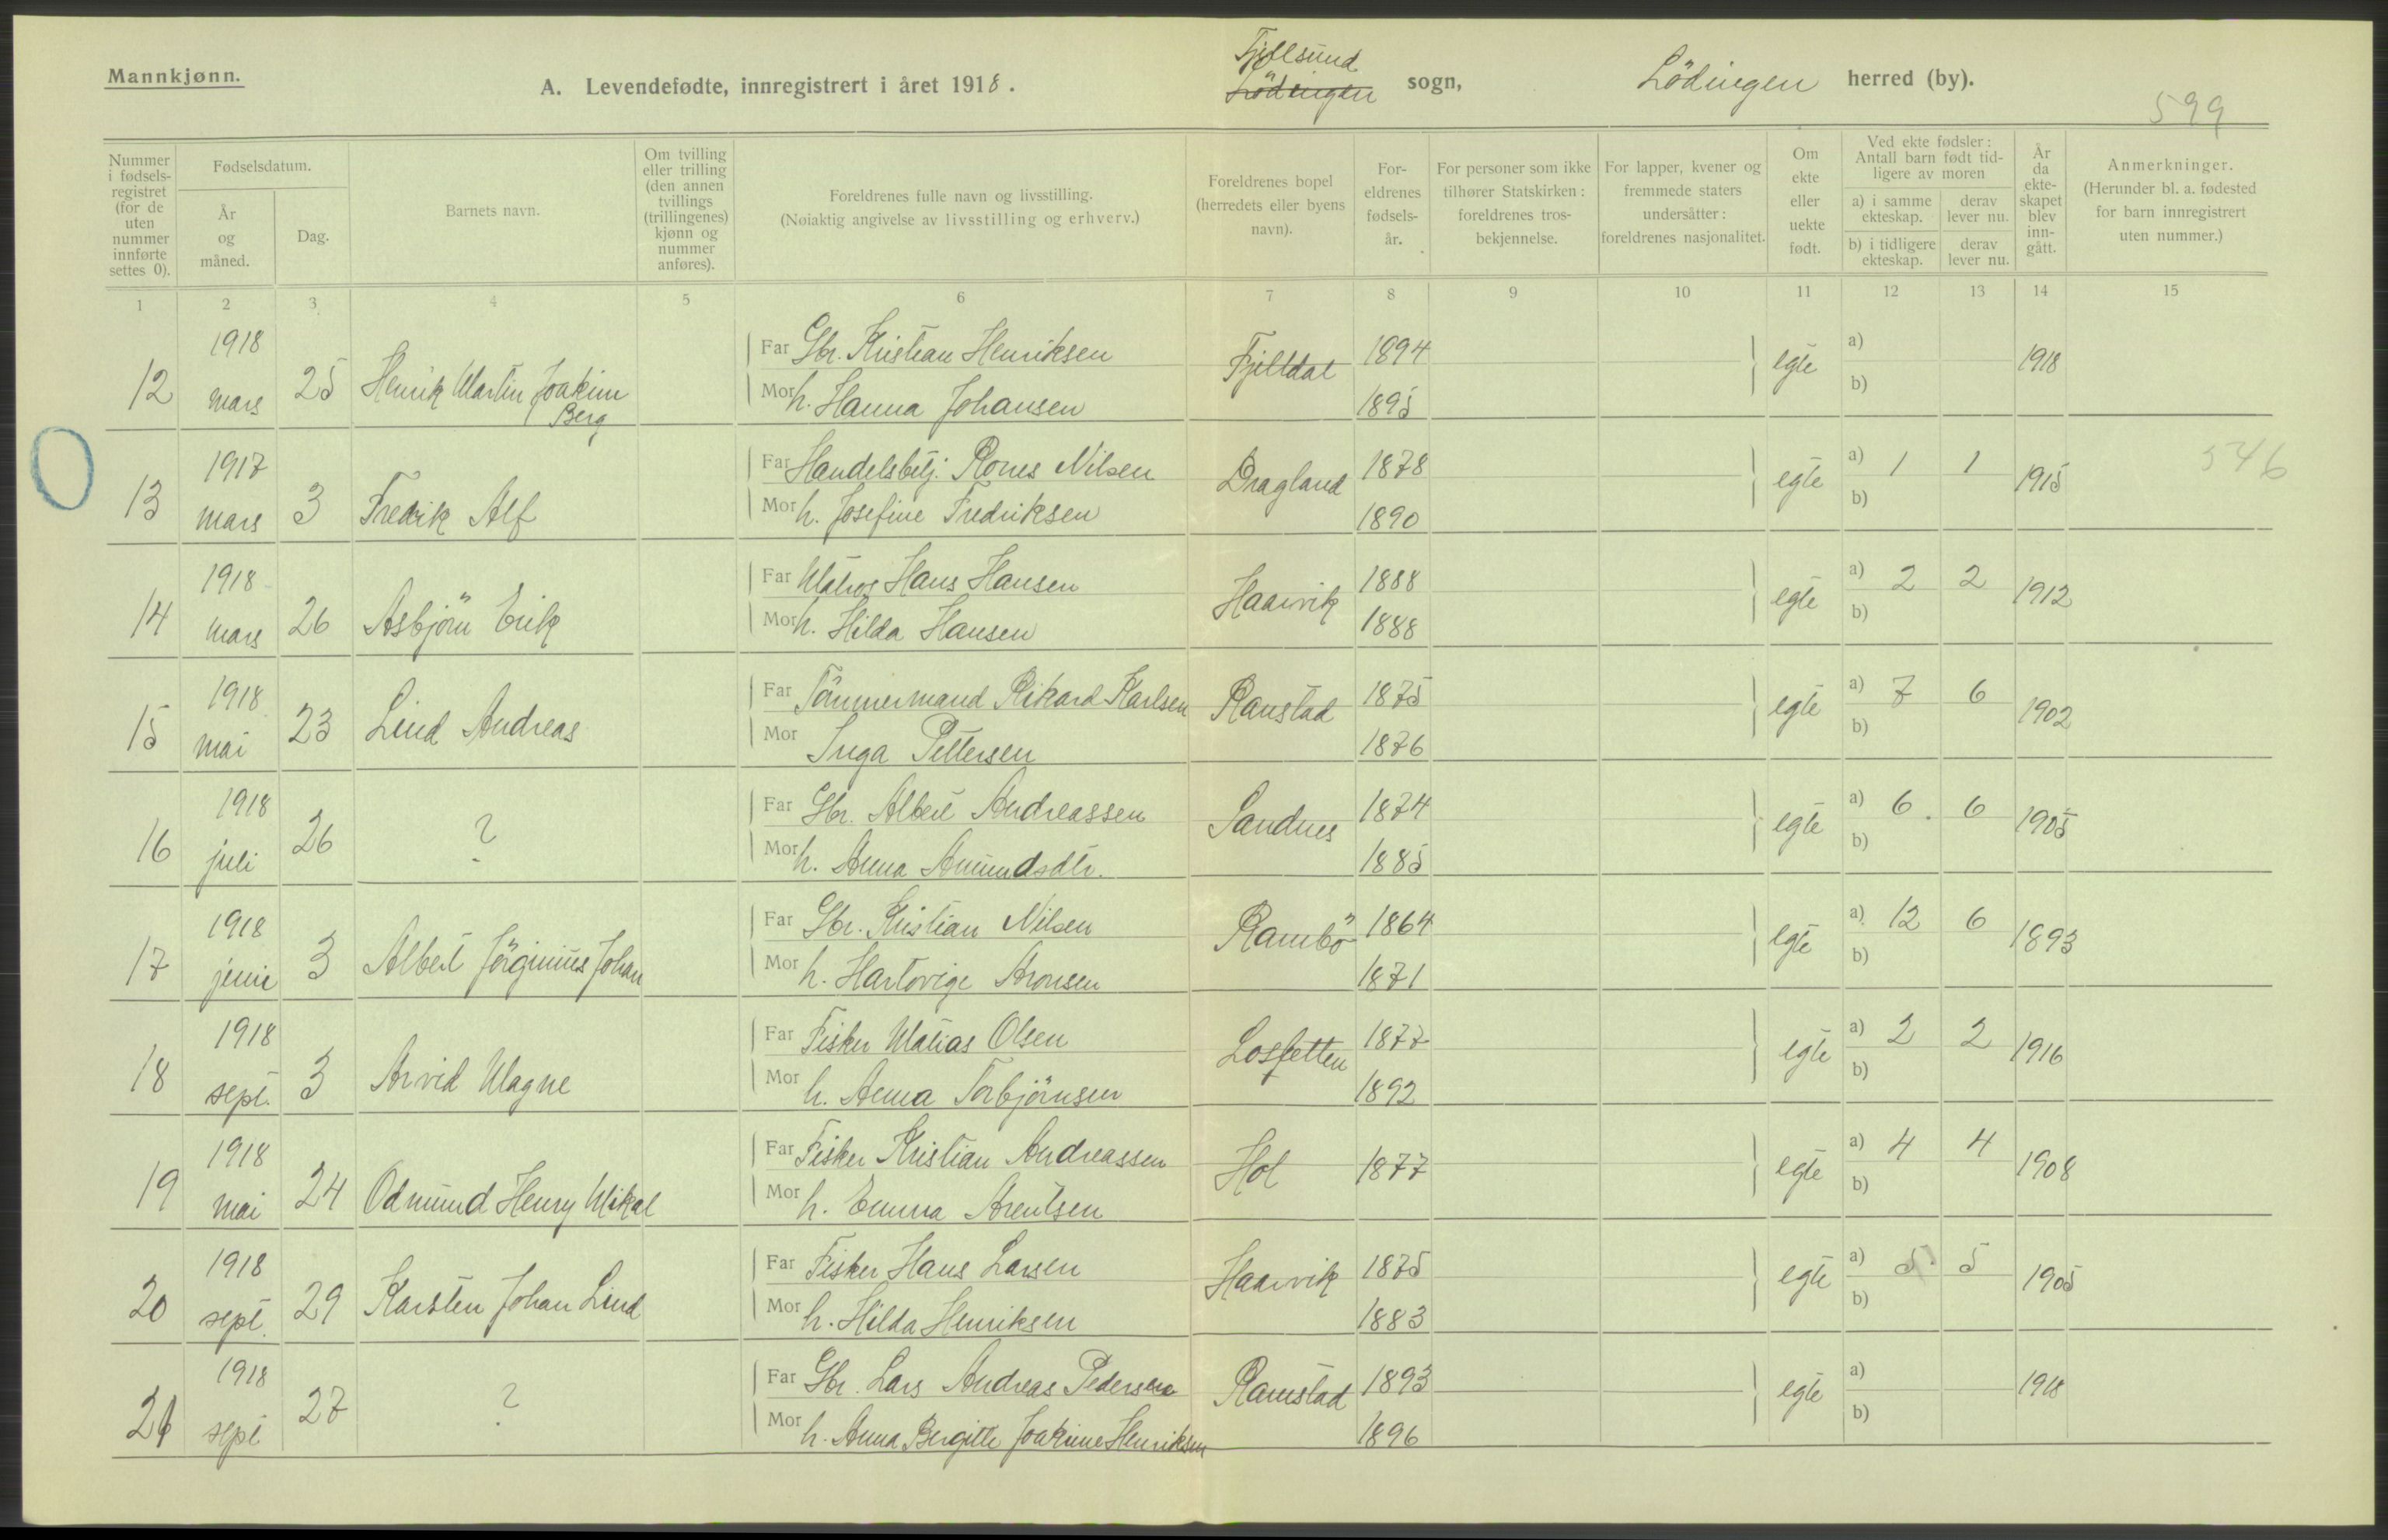 Mannkjønn.
A. Levendefødte, innregistrert i året 1918.
Fjelsund
Lödingen sogn,
Lödingen herred (by).
599
Nummer i fødselsregistret (for de uten nummer innførte settes 0).
Fødselsdatum.
År og måned.
Dag.
Barnets navn.
Om tvilling eller trilling (den annen tvillings (trillingenes) kjønn og nummer anføres).
Foreldrenes fulle navn og livsstilling.
(Nøiaktig angivelse av livsstilling og erhverv.)
Foreldrenes bopel (herredets eller byens navn).
Foreldrenes fødselsår.
For personer som ikke tilhører Statskirken: foreldrenes trosbekjennelse.
For lapper, kvener og fremmede staters undersåtter: foreldrenes nasjonalitet.
Om ekte eller uekte født.
Ved ekte fødsler: Antall barn født tidligere av moren
a) i samme ekteskap.
derav lever nu.
b) i tidligere ekteskap.
derav lever nu.
År da ekteskapet blev inngått.
Anmerkninger.
(Herunder bl. a. fødested for barn innregistrert uten nummer.)
1 2 3 4 5 6 7 8 9 10 11 12 13 14 15
12 1918 mars 25 Henrik Martin Joakim Berg
Far Gbr. Kristian Henriksen Fjelldal 1894 egte a) 1918
Mor h. Hanna Johansen 1895 b)
13 1917 mars 3 Fredrik Alf
Far Handelsbetj. Rones Nilsen Dragland 1878 egte a) 1 1 1915 546
Mor h. Josefine Fredriksen 1890 b)
14 1918 mars 26 Asbjörn Erik
Far Matros Hans Hansen Haarvik 1888 egte a) 2 2 1912
Mor h. Hilda Hansen 1888 b)
15 1918 mai 23 Lind Andreas
Far Tömmermand Rikard Karlsen Ramstad 1875 egte a) 7 6 1902
Mor Inga Pettersen 1876 b)
16 1918 juli 26 ?
Far Gbr. Albert Andreassen Sandnes 1874 egte a) 6. 6 1905
Mor h. Anna Amundsdtr. 1885 b)
17 1918 juni 3 Albert Jörginius Johan
Far Gbr. Kristian Nilsen Rambö 1864 egte a) 12 6 1893
Mor h. Hartvige Aronsen 1871 b)
18 1918 sept. 3 Arvid Magne
Far Fisker Matias Olsen 1877 egte a) 2 2 1916
Mor h. Anna Torbjörnsen 1892 b)
19 1918 mai 24 Odmund Henry Mikal
Far Fisker Kristian Andreassen Hol 1877 egte a) 4 4 1908
Mor h. Emma Arentsen b)
20 1918 sept. 29 Karsten Johan Lind
Far Fisker Hans Larsen Haarvik 1875 egte a) 5 5 1905
Mor h. Hilda Henriksen 1883 b)
21 1918 sept 27 ?
Far Gbr. Lars Andreas Pedersen Ramstad 1893 egte a) 1918
Mor h. Anna Bergitte Joakime Henriksen 1896 b)